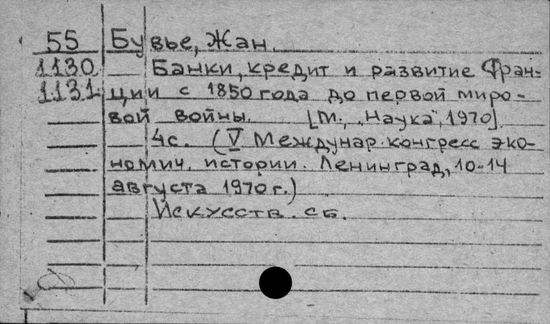 55 Бувье, Жан.
1130 Банки, кредит и развитие Фран-
1131 ции с 1850 года до первой миро-
вой войны. [М., "Наука", 1970].
4с. (V Междунар. конгресс эко-
номич. истории. Ленинград, 10-14
августа 1970 г.)
Искусств. сб.